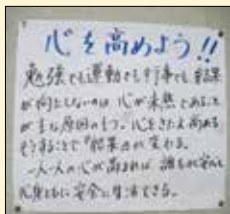 心を高めよう!!
勉強でも運動でも行事でも結果
が向上しないのは心が未熟であること
が主な原因の1つ。心をきたえ高める
そうすることで結果が変わる。
一人一人の心が高まれば 誰もが安心
心身ともに安全に生活できる。